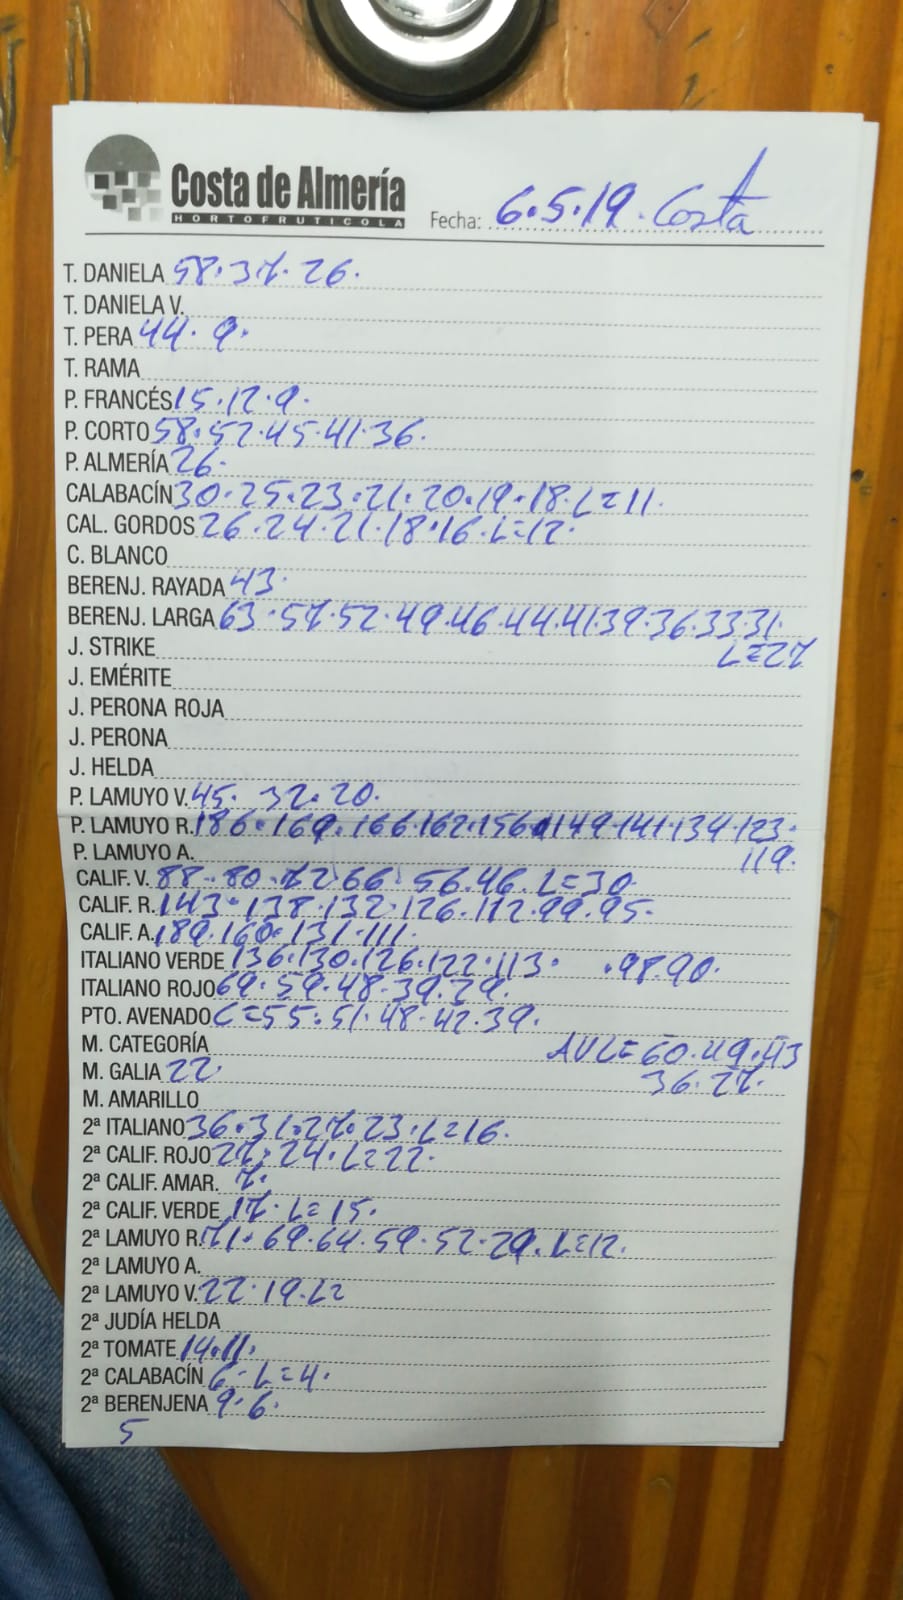 Costa de Almería
HORTOFRUTICOLA
Fecha: 6.5.19. Costa
T. DANIELA 58.37.26.
T. DANIELA V.
T. PERA 44. 9.
T. RAMA
P. FRANCÉS 15.12.9.
P. CORTO 58.52.45.41.36.
P. ALMERÍA 26.
CALABACÍN 30.25.23.21.20.19.18.L=11.
CAL. GORDOS 26.24.21.18.16.L=12.
C. BLANCO
BERENJ. RAYADA 43.
BERENJ. LARGA 63.57.52.49.46.44.41.39.36.33.31.
J. STRIKE L=27
J. EMÉRITE
J. PERONA ROJA
J. PERONA
J. HELDA
P. LAMUYO V. 45. 32.20.
P. LAMUYO R. 186.169.166.162.156.149.141.134.123.
P. LAMUYO A. 119.
CALIF. V. 88.80.72 66. 56.46.L=30.
CALIF. R. 143.138.132.126.112.99.95.
CALIF. A. 189.160.131.111.
ITALIANO VERDE 136.130.126.122.113. .98.90.
ITALIANO ROJO 69.59.48.39.29.
PTO. AVENADO C=55.51.48.42.39.
M. CATEGORÍA AVL=60.49.43
M. GALIA 22. 36.27.
M. AMARILLO
2ª ITALIANO 36.31.27.23.L=16.
2ª CALIF. ROJO 27.24.L=22.
2ª CALIF. AMAR. 7.
2ª CALIF. VERDE 17. L=15.
2ª LAMUYO R. 71.69.64.59.52.29.L=12.
2ª LAMUYO A.
2ª LAMUYO V. 22.19.L=
2ª JUDÍA HELDA
2ª TOMATE 14.11.
2ª CALABACÍN 6. L=4.
2ª BERENJENA 9.6.
5